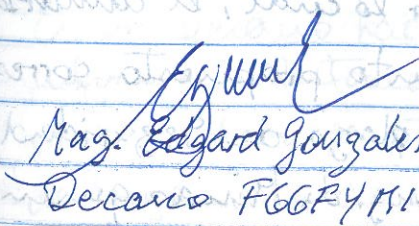 Mag. Edgard Gonzales
Decano FGGFYMI